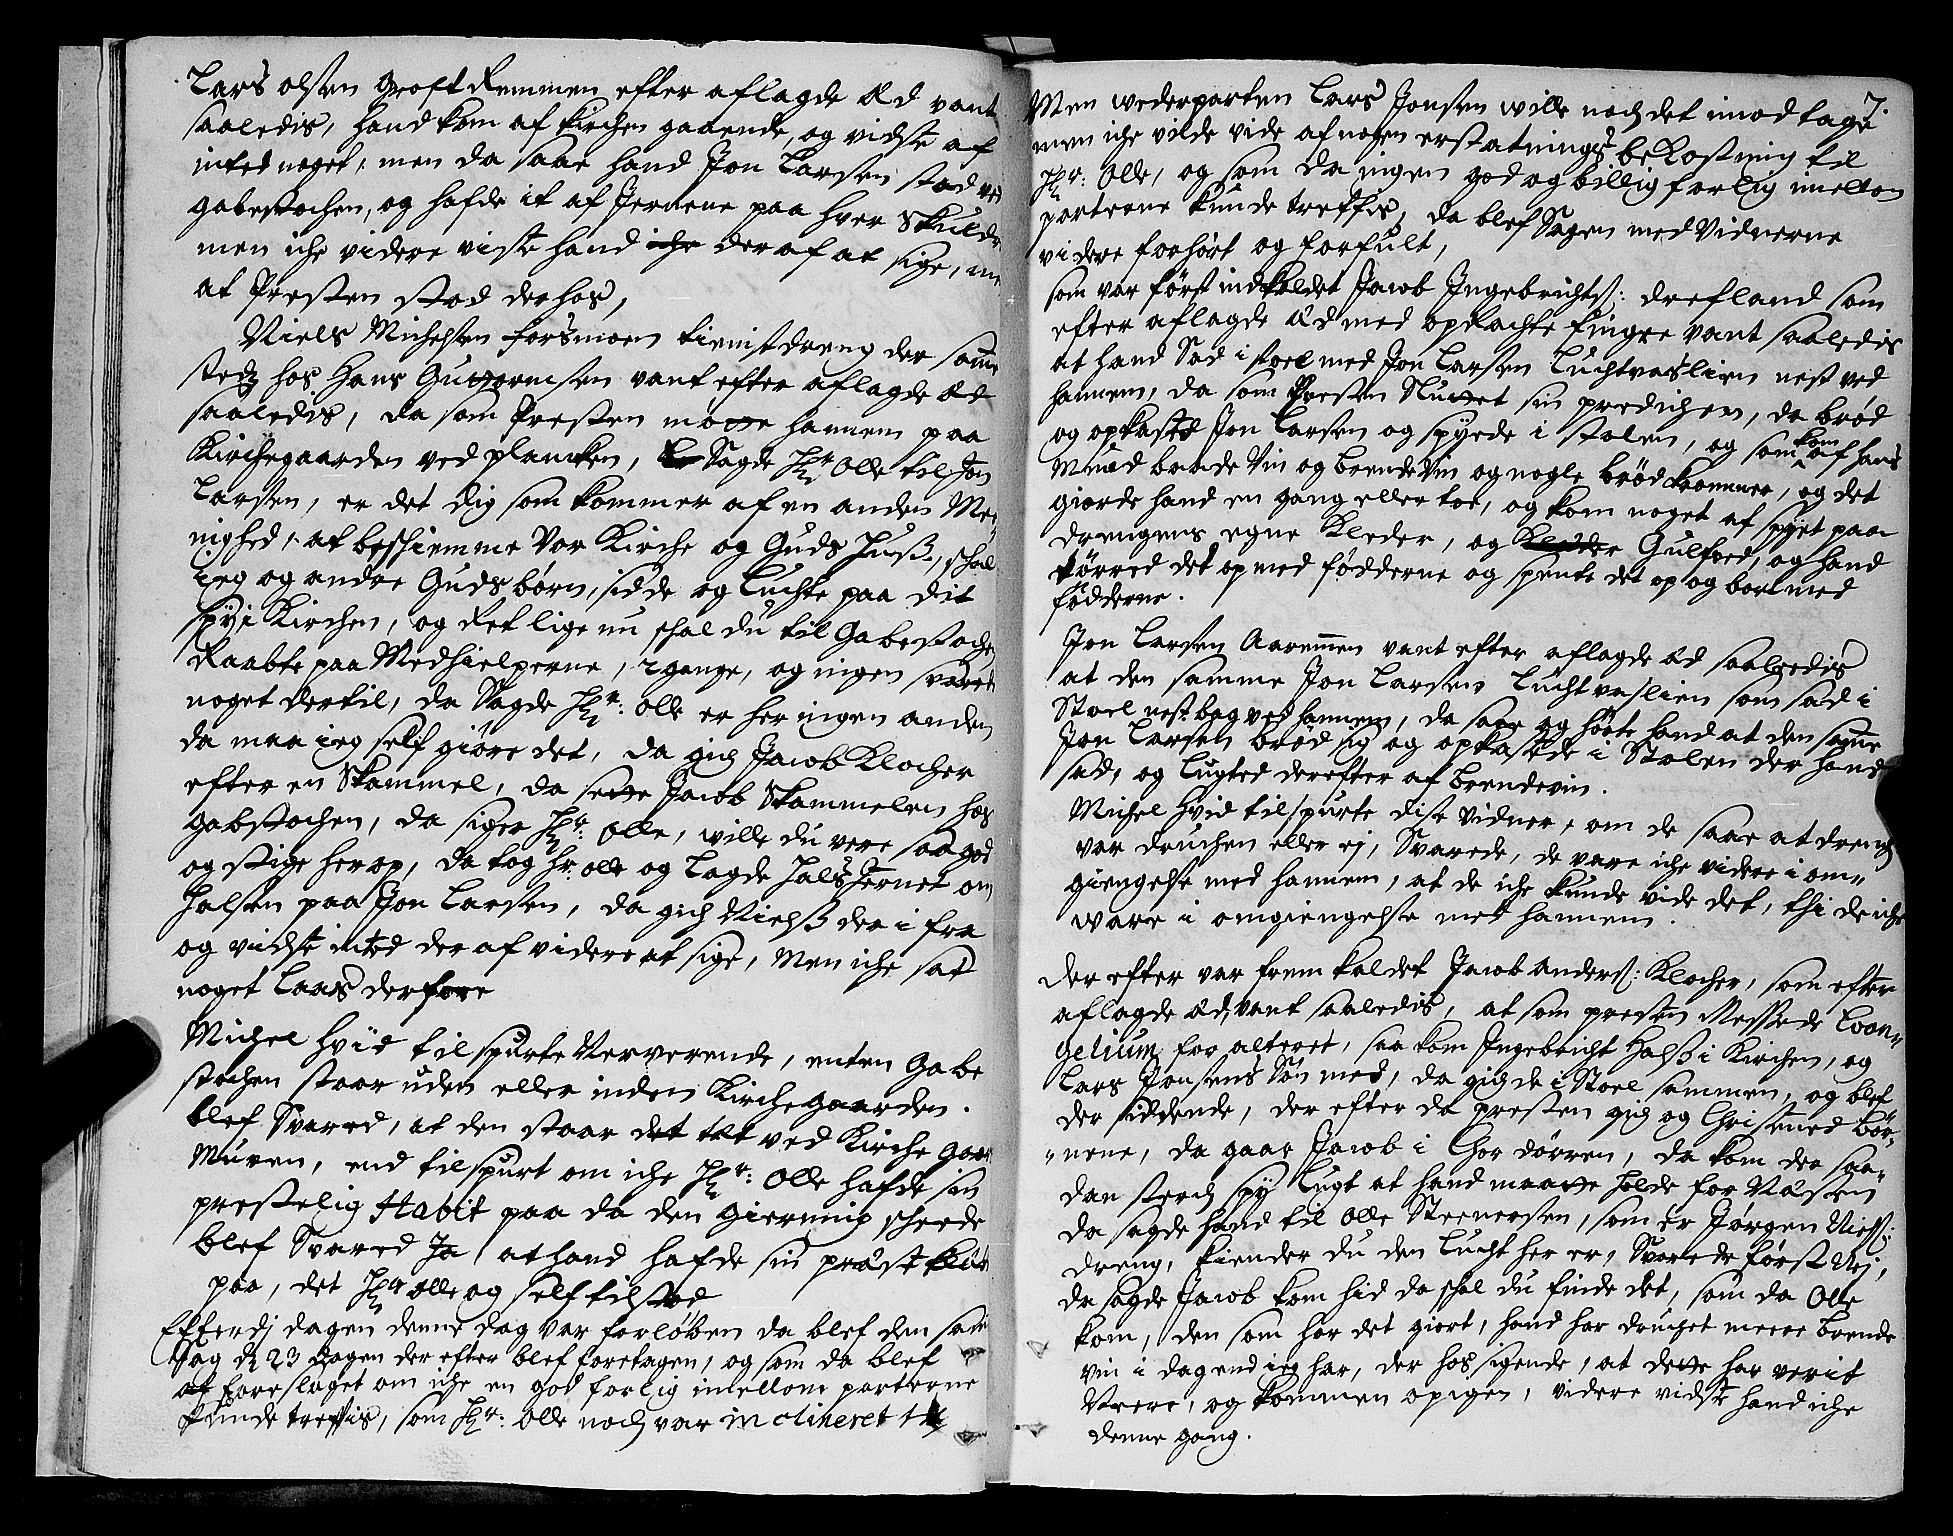 Lars olsen groftRemmen efter aflagde Ed vant
saaledis, hand kom af kirchen gaaende, og vidste af
inted noget, men da saae hand Jon Larsen stod ved
gabestochen, og hafde it af Jernene paa hver Skulder
men iche videre viste hand iche deraf at sige,
at Presten stod derhos,
Niels Michelsen forsmoen tienistdreng der samme
steds hos Hans Guttormsen vant efter aflagde Ed
saaledis, da som Presten motte hannem paa
Kirchegaarden ved plancken, Sagde Hr Olle til Jon
Larsen, er det dig som kommer af en anden Me-
nighed, at beschiemme Vor Kirche og Guds Huuß, schal
ieg og andre Guds børn, sidde og luchte paa dit
spÿ i Kirchen, og ret lige nu schal du til Gabestochen
Raabte paa Medhielperne, 2 gange, og ingen svared
noget dertil, da Sagde Hr: Olle er her ingen anden
da maa ieg self giøre det, da gich Jacob Klocher
efter en Skammel, da sette Jacob Skammelen hos
gabstochen, da siger Hr: Olle, ville du vere saa god
og stige her op, da tog hr: olle og lagde HalsJernet om
Halsen paa Jon Larsen, da gich Nielß der i fra
og vidste inted der af videre at sige, Men iche sat
noget Laas derfore
Michel Hvid tilspurte Nerverende, enten Gabe
stochen staar uden eller inden Kirchegaarden.
blef Svared, at den staar det tæt ved Kirche gaar
Muren, end tilspurt om iche Hr: Olle hafde sin
prestelig Habit paa da den gierning scheede
blef Svared Ja, at hand hafde sin præst
paa, det Hr olle og self tilstod
Efterdj dagen denne dag var forløben da blef den samme
Sag d 23 Dagen der efter blef foretagen, og som da blef
af foreslaget om iche en god forlig imellom parterne
kunde treffis, som Hr: Olle noch var inclineret til
7.
Men wederparten Lars Jonsen wille noch det imod tage
men iche vilde vide af nogen erstatnings bekostning til
Hr: Olle, og som da ingen god og billig forlig imellom
parterne kunde treffis, da blef Sagen med Vidnerne
videre forhørt og forfult,
som var først indkaldet Jacob Ingebrichts: drefland som
efter aflagde Ed med opRachte finger vant saaledis
at hand Sad i stoel med Jon Larsen Luchtvaslien nest ved
hannem, da som Presten Sluttet sin predichen, da brød
og opkasted Jon Larsen og spÿede i stolen, og som kom af hans
Mund baade Vin og brendeVin og nogle brød krommer, og det
giorde hand en gang eller toe, og kom noget af spÿet paa
drengens egne Kleder, og Kleder Gulfved, og hand
tørred det op med fødderne og spente det op og bort med
fødderne.
Jon Larsen Aaremen vant efter aflagde Ed saaledis
at den samme Jon Larsen Luchtvaslien som sad i
Stoel nest bag ved hannem, da saae og hørte hand at den samme
Jon Larsen brød sig og opkastede i Stolen der hand
sad, og lugted derefter af brendevin.
Michel Hvid tilspurte disse vidner, om de saae at dreng
var druchen eller ej, Svarede, de vare iche videre i om-
giengelse med hannem, at de iche kunde vide det, thi de iche
ware i omgiengelse med hannem.
Der efter var frem kaldet Jacob Anders: Klocher, som efter
aflagde Ed, vant saaledis, at som presten Messede Evan-
gelium for alteret, saa kom Ingebricht Halß i Kirchen, og
Lars Jonsens Søn med, da gich de i Stoel sammen, og blef
der siddende, der efter da presten gich og Christned bør-
nene, da gaar Jacob i Chor dørren, da kom der saa-
dan sterch spÿ lugt at hand maatte holde for Næsen
da sagde hand til Olle Steenersen, som er Jørgen Niels:
dreng, kiender du den lucht her er, Svarede først Nej,
da sagde Jacob kom hid da schal du finde det, som da Olle
kom, den som har det giort, hand har druchet mere brende
vin i dag end ieg har, der hos sigende, at dette har verit
Verre, og kommen op igen, videre vidste hand iche
denne gang.